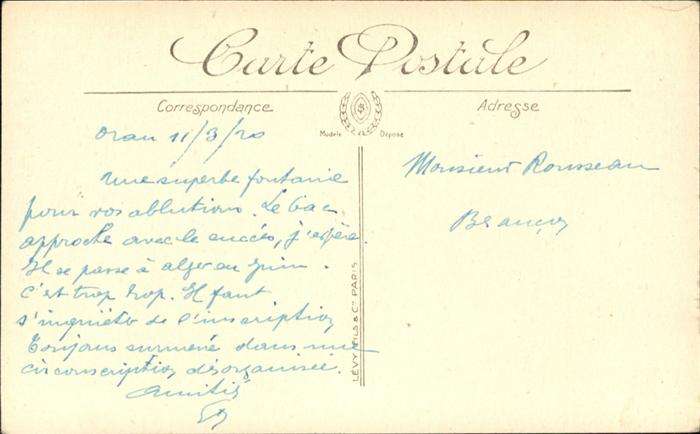 Carte Postale
Correspondance
Adresse
Modèle Déposé
Oran 11/3/20
Une superbe fontaine
pour vos ablutions. Le bac
approche avec le succès, j'espère.
Il se passe à alger en juin.
C'est trop trop. Il faut
s'inquiéter de l'inscription
Toujours surmené dans une
circonscription désorganisée.
Amitiés
Monsieur Rousseau
LÉVY FILS & Cie PARIS